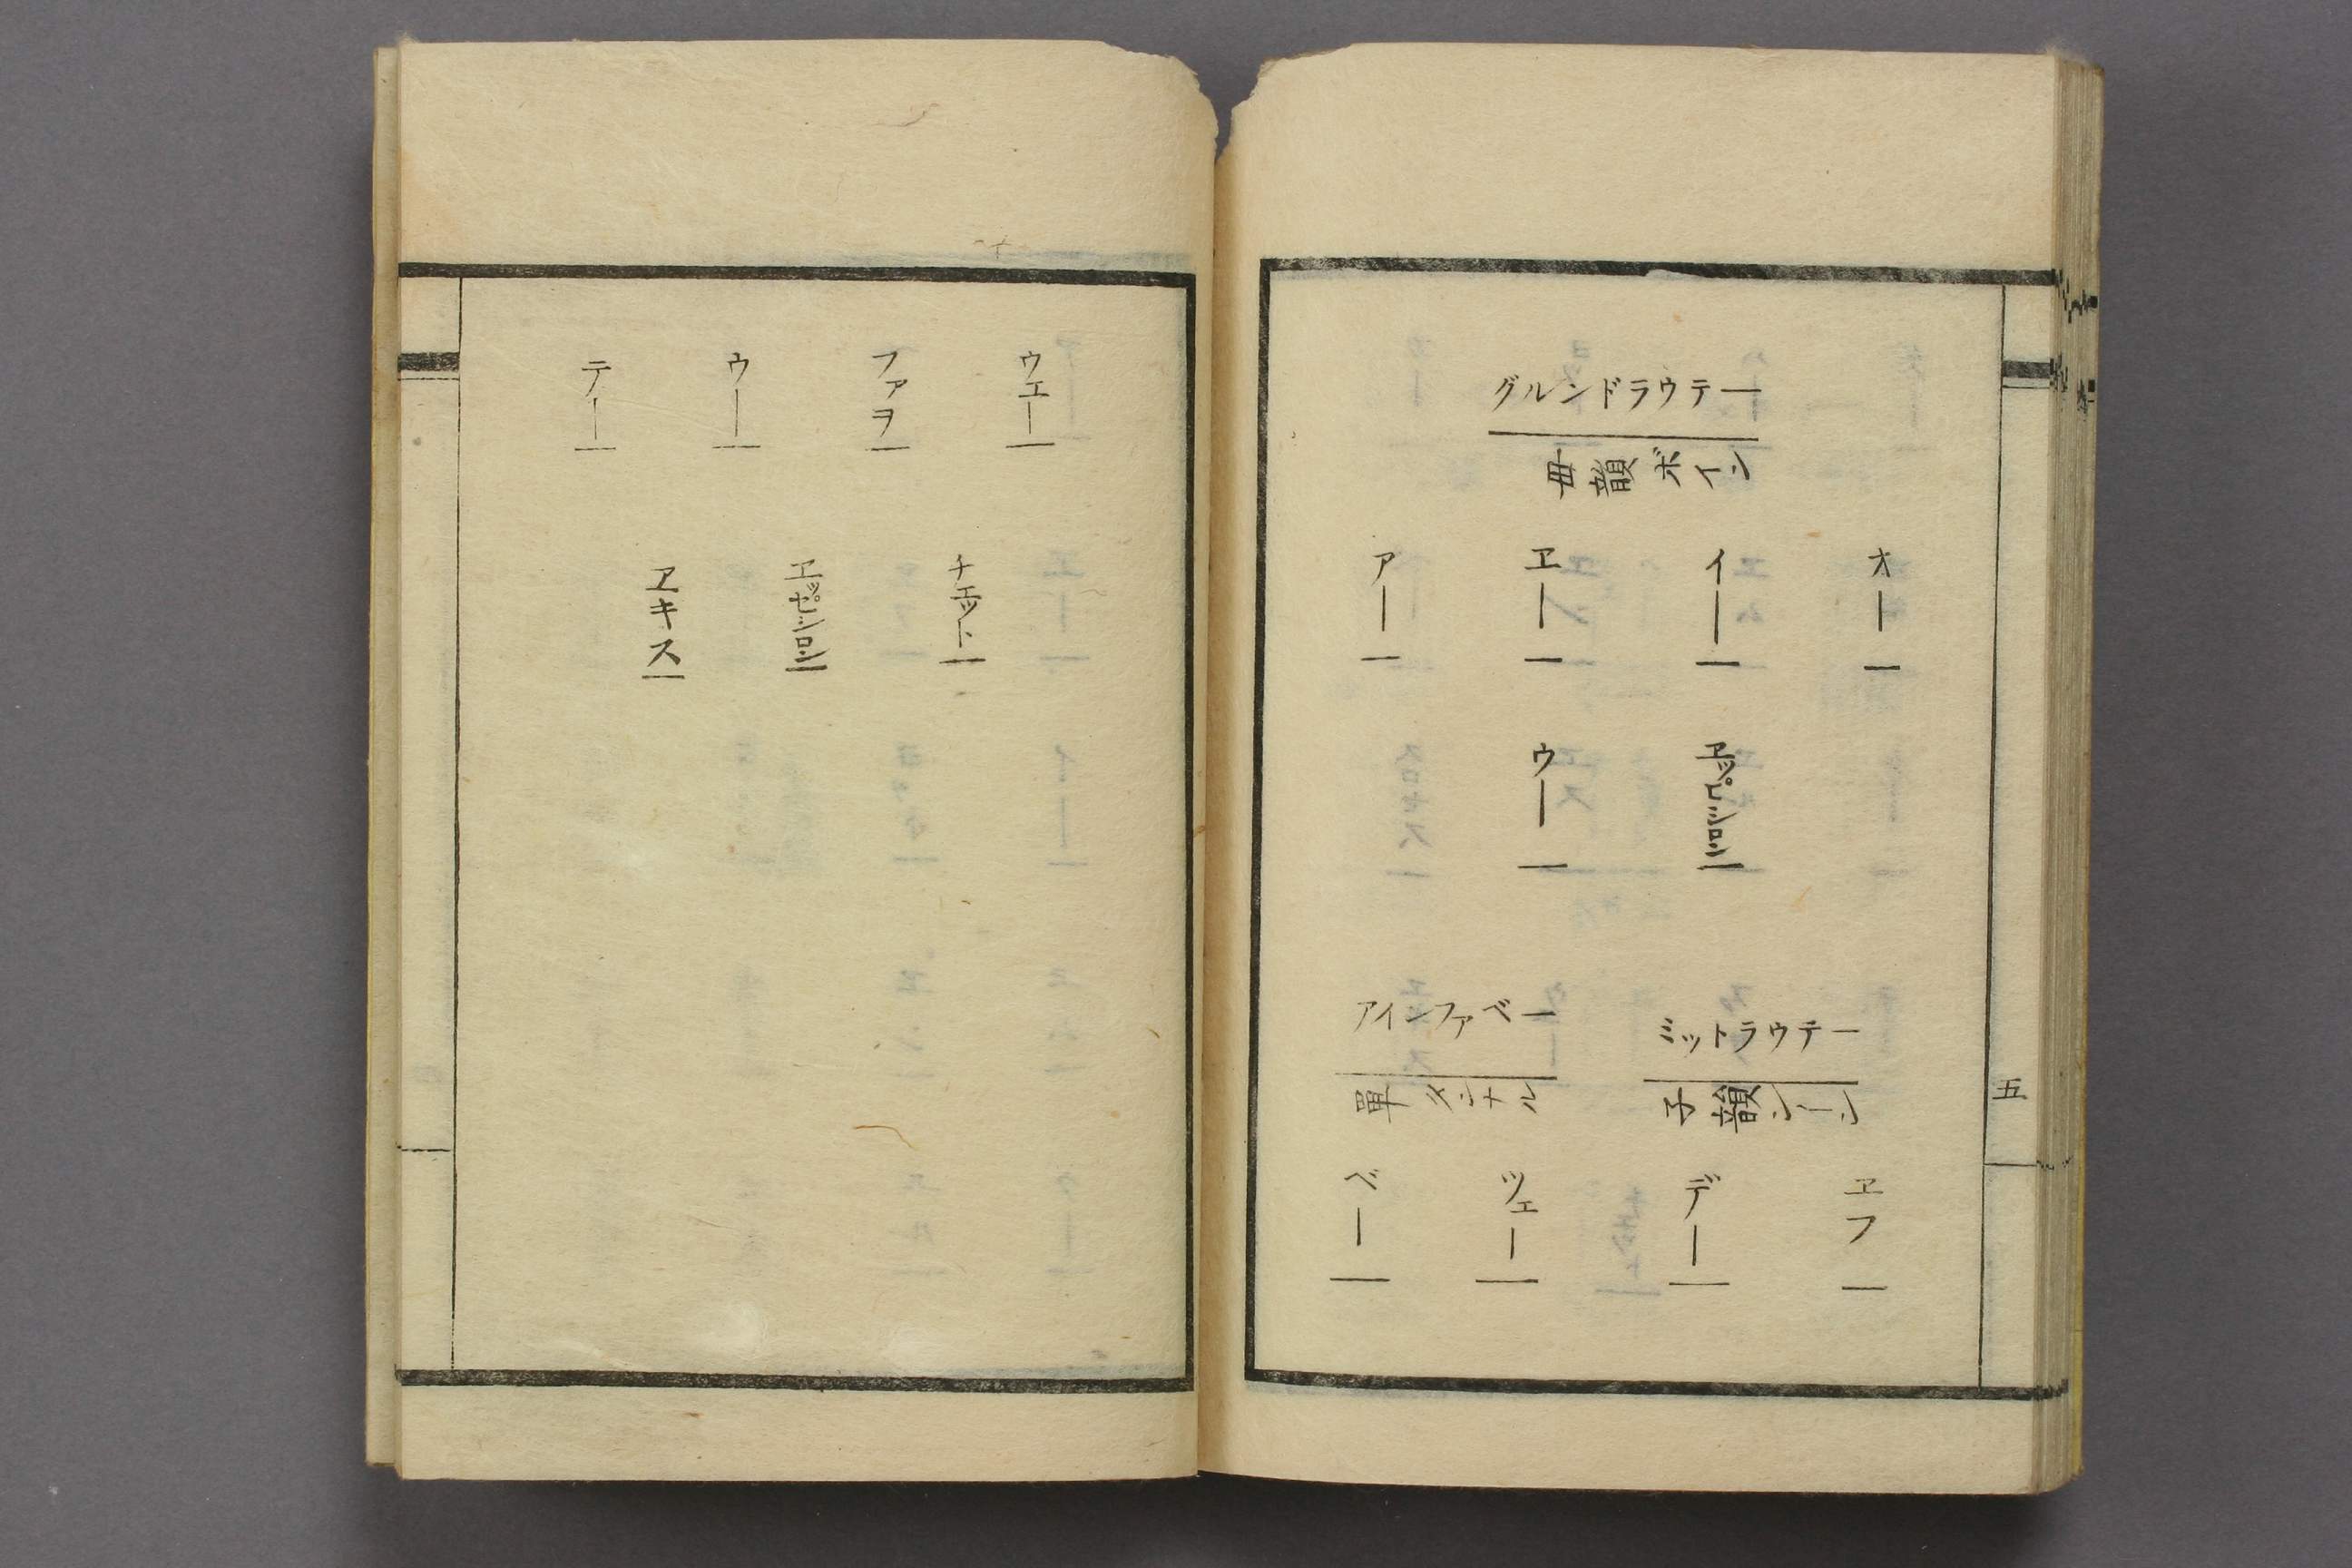 グルンドラウテー
母韻ボイン
オー
イー
エー
アー
エッピシロン
ウー
アインファベー
ミットラウテー
單
子韻シーン
ベー
ツェー
デー
エフ
五
ウエー
ファヲ
ウー
テー
チエット
エッピシロン
エキス